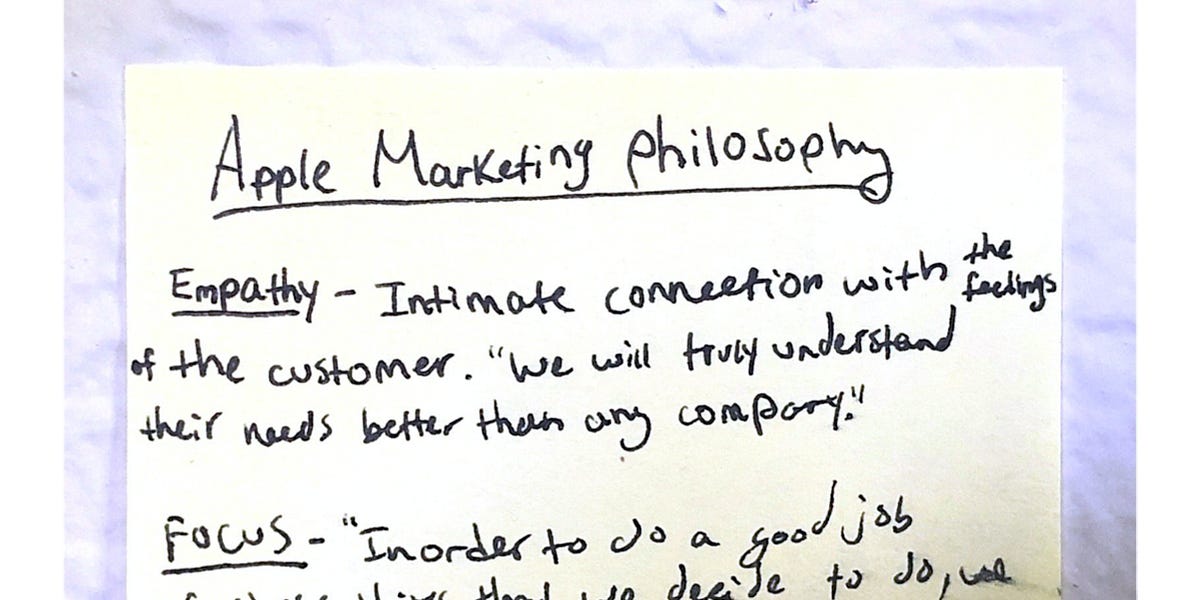 Apple Marketing philosophy
Empathy - Intimate connection with the feelings
of the customer. "We will truly understand
their needs better than any company."
FOCUS - "Inorder to do a good job
of those things that we decide to do, we